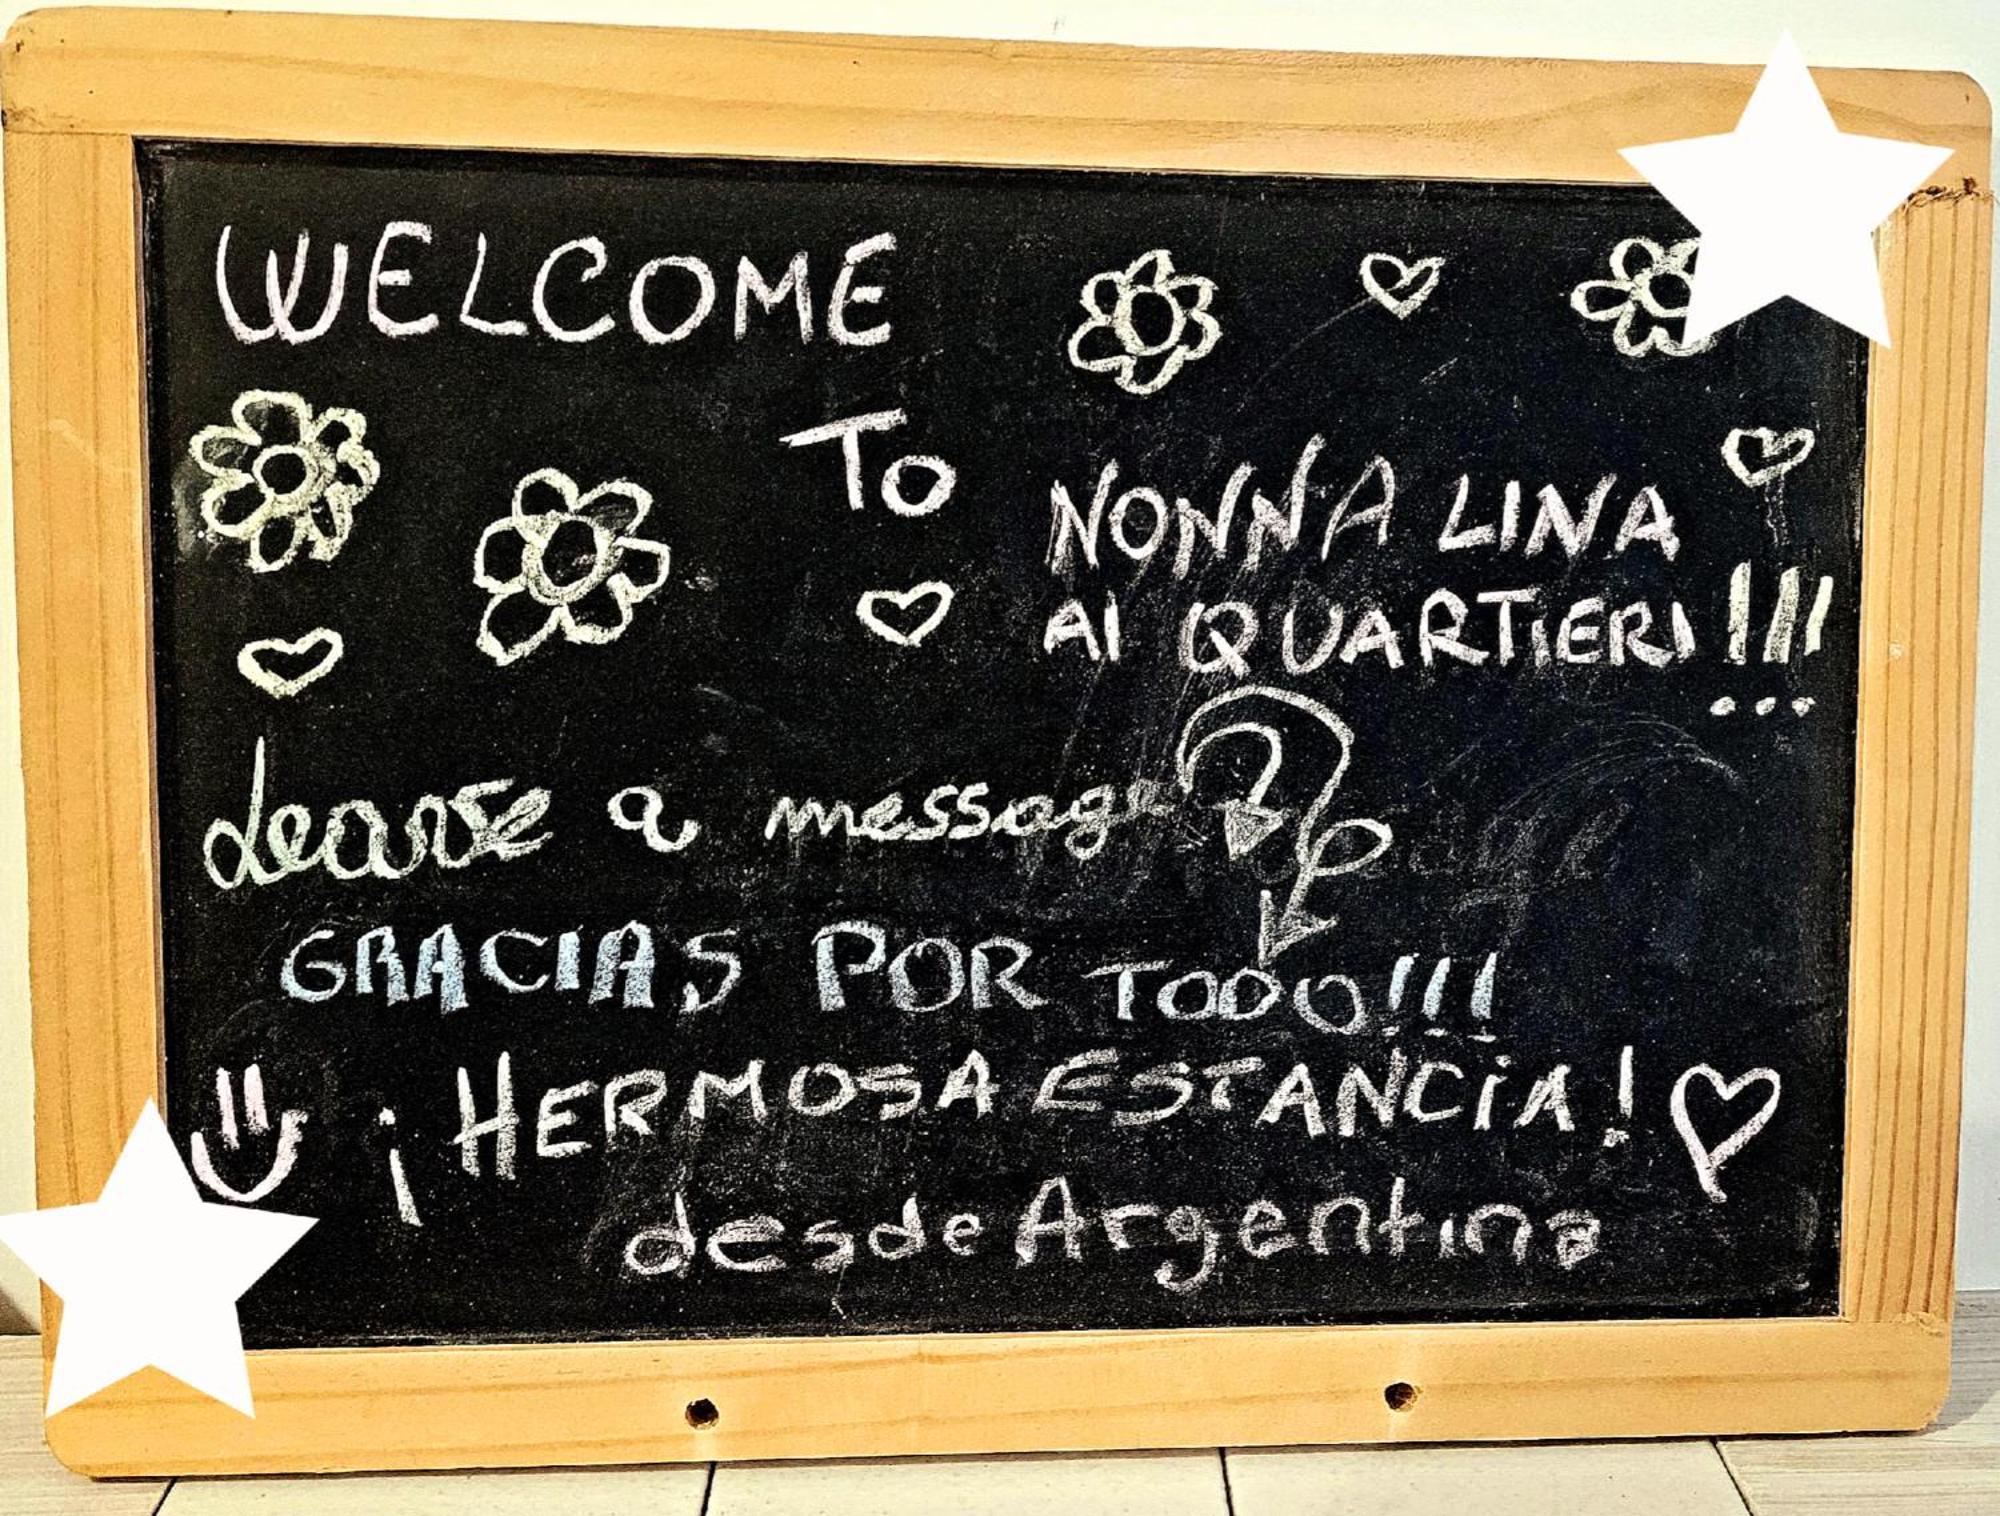 WELCOME
To
NONNA LINA
AI QUARTIERI!!!
Leave a message
GRACIAS POR TODO!!!
¡HERMOSA ESTANCIA!
desde Argentina